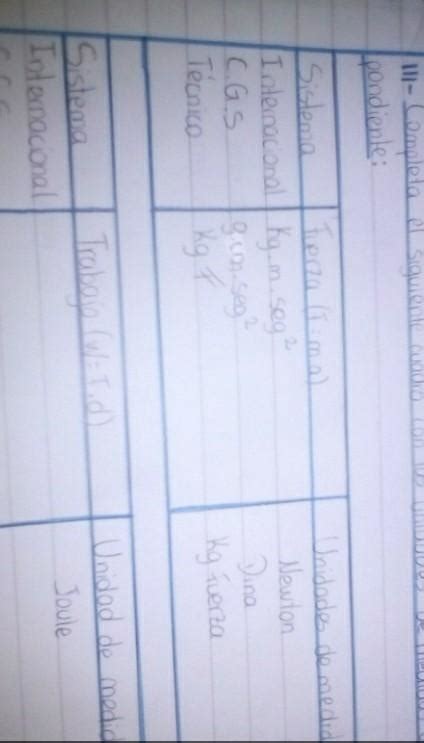 III- Completa el siguiente cuadro con las unidades de medida
pondiente:
Sistema Fuerza (F=m.a) Unidades de medid
Internacional Kg.m.seg² Newton
C.G.S g.cm.seg² Dina
Técnico Kg f Kg fuerza
Sistema Trabajo (W=F.d) Unidad de medid
Internacional Joule
C.G.S